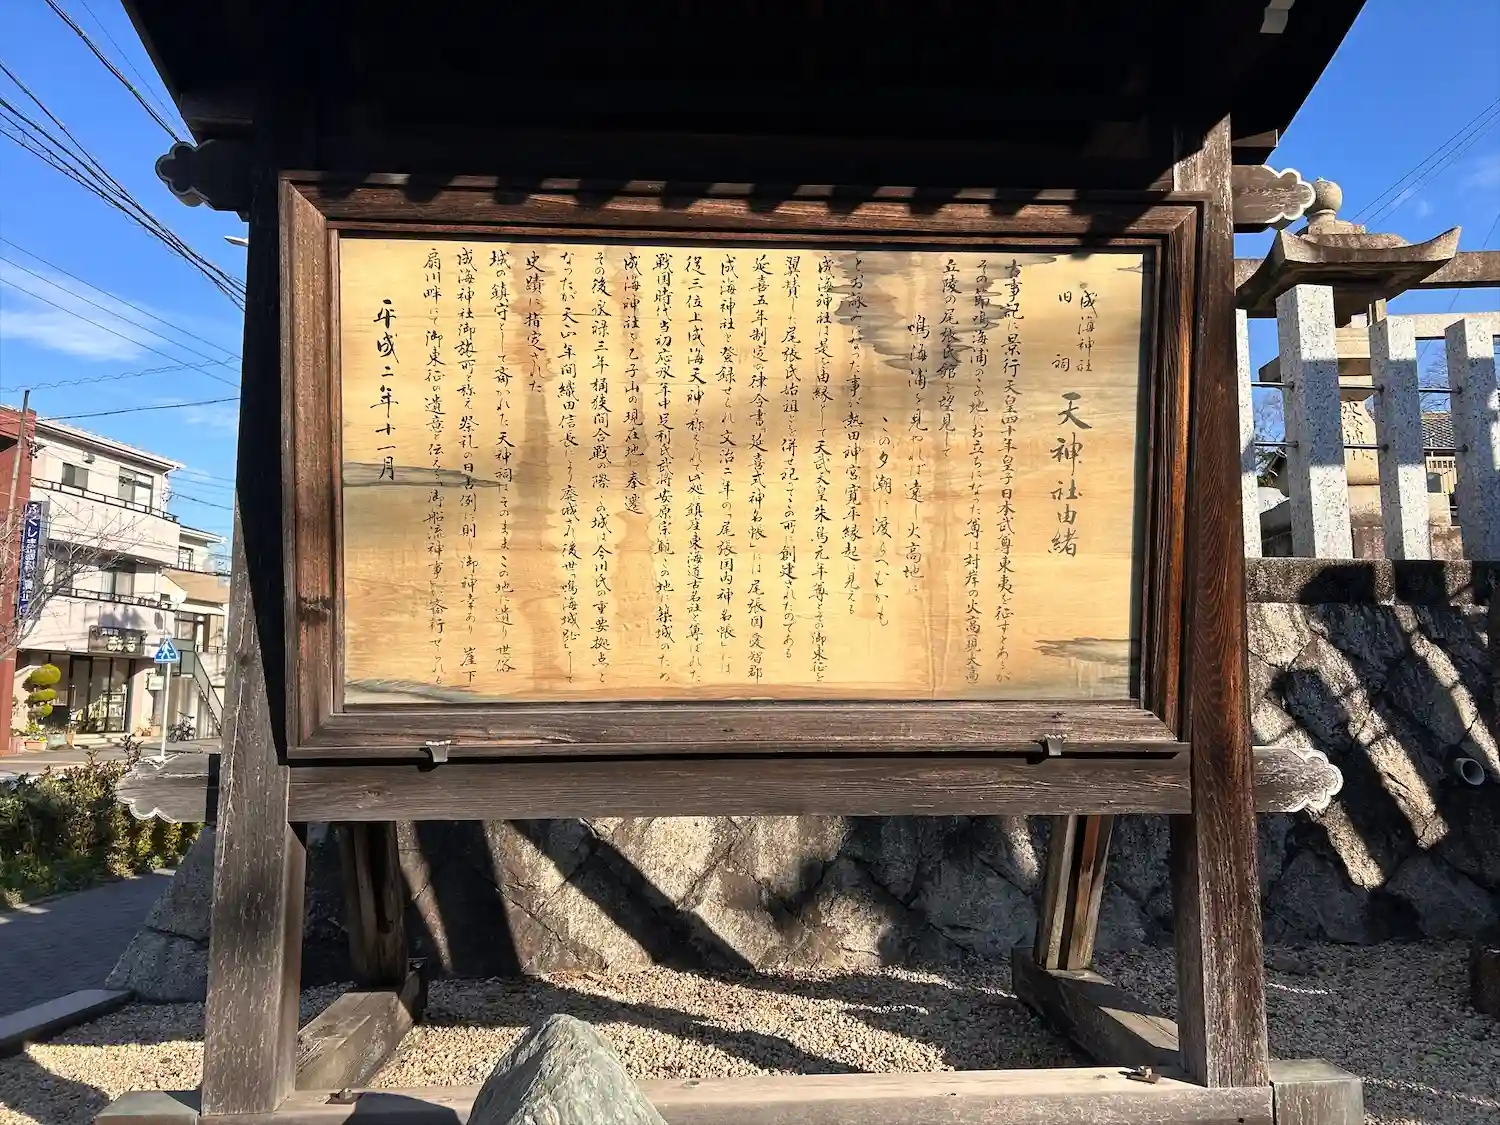 成海神社
旧祠
天神社由緒
古事記に景行天皇四十年皇子日本武尊東夷を征すとあるが
その節鳴海浦のこの地にお立ちになった尊は対岸の火高(現大高)
丘陵の尾張氏館を望見して
鳴海浦を見やれば遠し火高地に
この夕潮に渡らへむかも
とお詠みになった事が熱田神宮寛平縁起に見える
成海神社は是を由縁として天武天皇朱鳥元年尊とその御東征を
翼賛した尾張氏始祖とを併せ祀ってこの所に創建されたのである
延喜五年制定の律令書「延喜式神名帳」には尾張国愛智郡
成海神社と登録せられ文治二年の「尾張国内神名帳」は
従三位上成海天神と称えられて此処に鎮座東海道古名社と算ばれた
戦国時代当初応永年中足利氏武将安原宗範この地に築城のため
成海神社は乙子山の現在地へ奉遷
その後永禄三年桶狭間合戦の際この城は今川氏の重要拠点と
なったが天正年間織田信長により廃城され後世「鳴海城趾」として
史蹟に指定された
城の鎮守として斎かれた天神祠はそのままこの地に遺り世俗
成海神社御旅所と称え祭礼の日古例に則り御神幸あり 崖下
扇川畔にて御東征の遺意を伝える「御船流神事」が斎行せられる
平成二年十一月